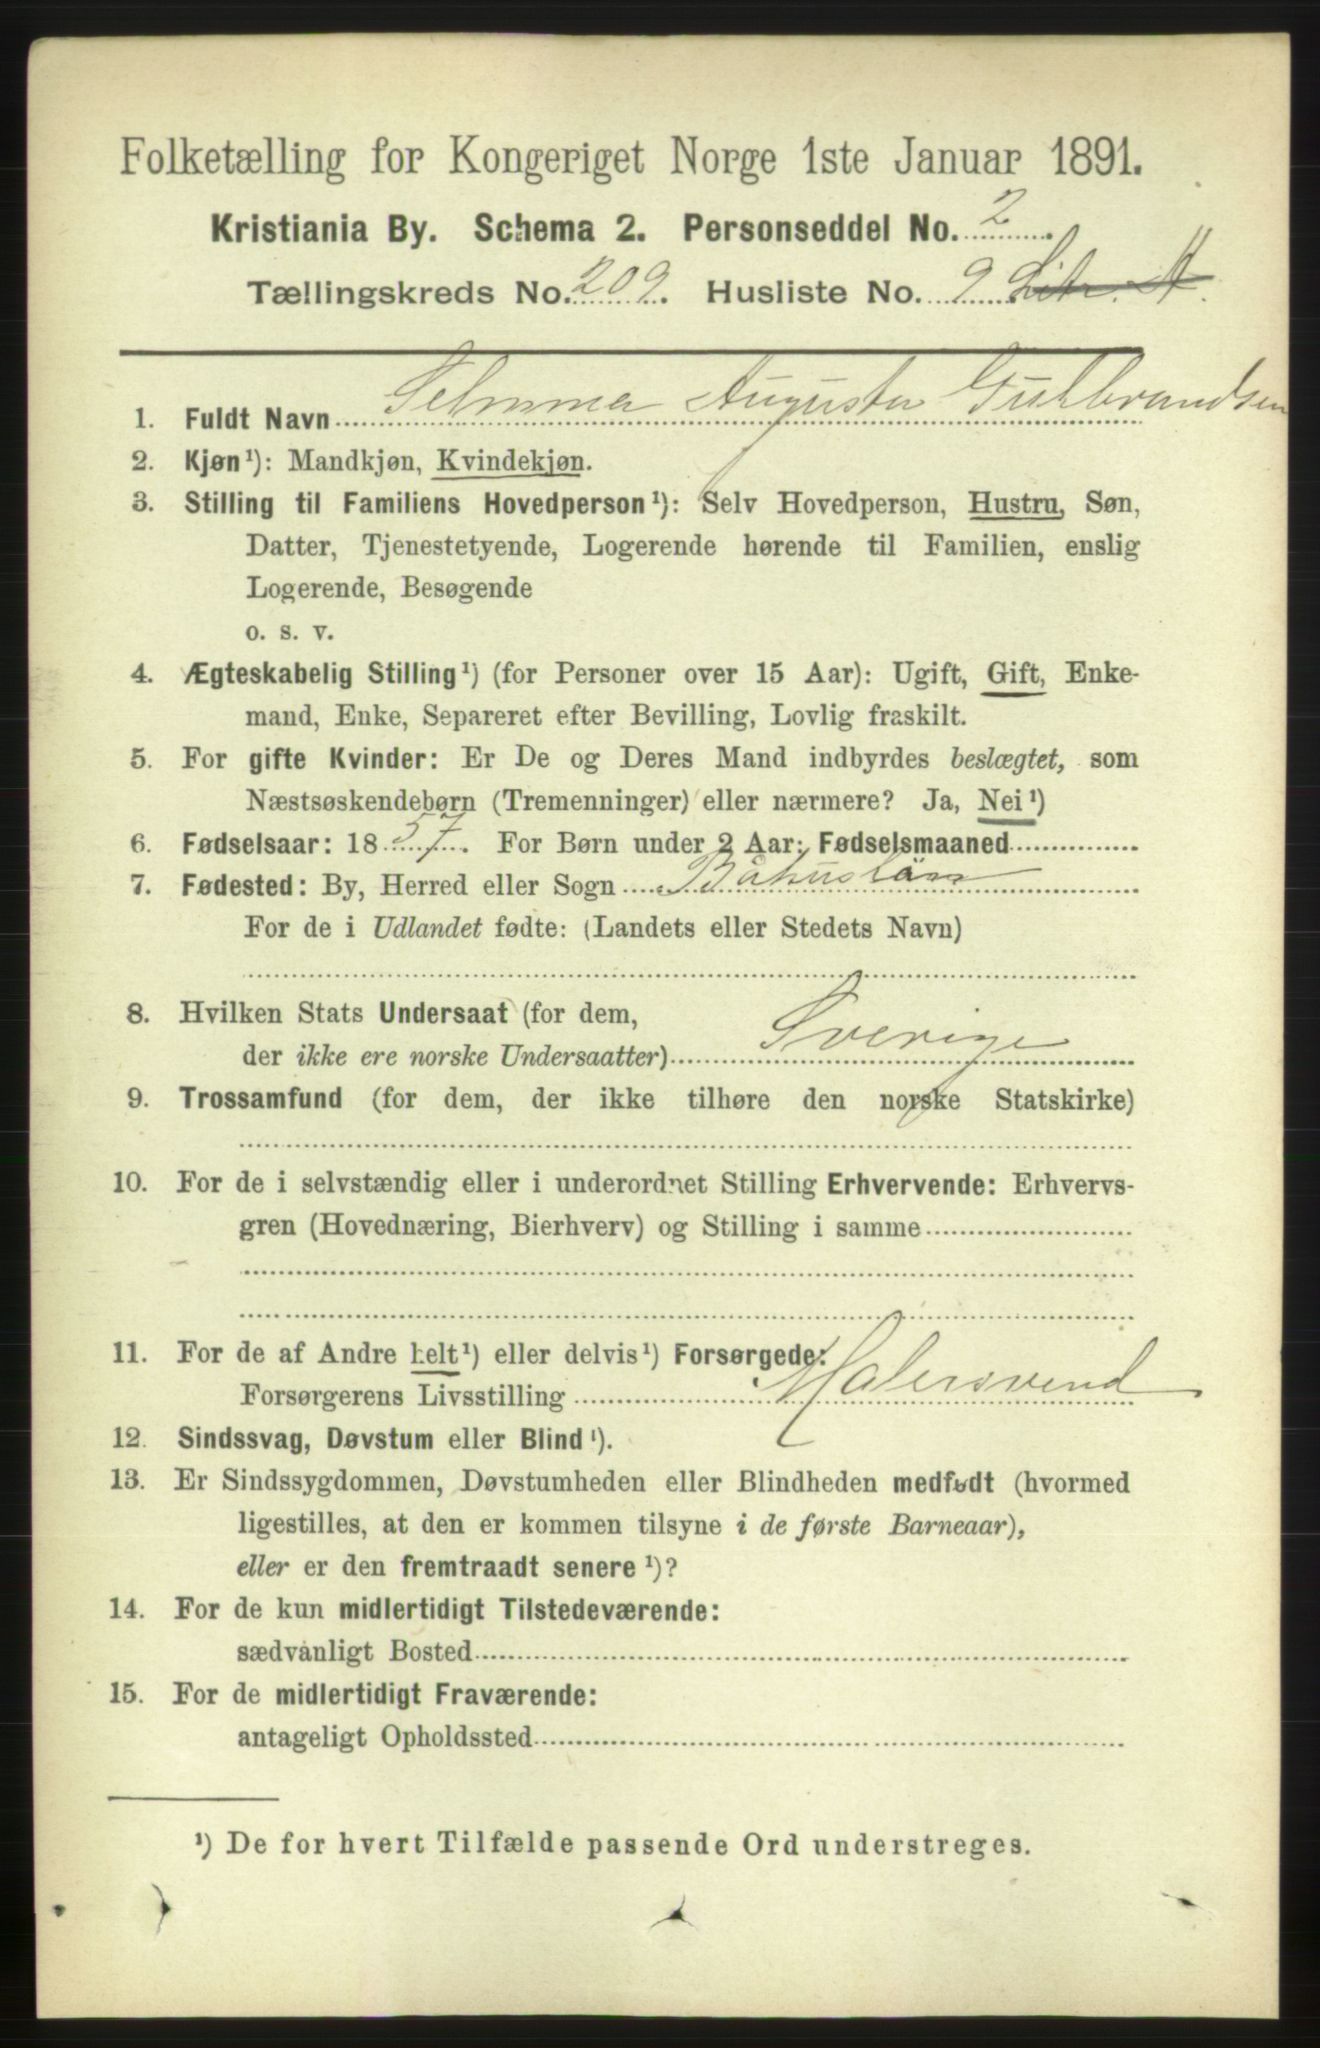 Folketælling for Kongeriget Norge 1ste Januar 1891.
Kristiania By. Schema 2. Personseddel No. 2.
Tællingskreds No. 209. Husliste No. 9 Litr. A.
1. Fuldt Navn Selmma Augusta Gulbrandsen
2. Kjøn¹): Mandkjøn, Kvindekjøn.
3. Stilling til Familiens Hovedperson¹): Selv Hovedperson, Hustru, Søn,
Datter, Tjenestetyende, Logerende hørende til Familien, enslig
Logerende, Besøgende
o. s. v.
4. Ægteskabelig Stilling¹) (for Personer over 15 Aar): Ugift, Gift, Enke-
mand, Enke, Separeret efter Bevilling, Lovlig fraskilt.
5. For gifte Kvinder: Er De og Deres Mand indbyrdes beslægtet, som
Næstsøskendebørn (Tremenninger) eller nærmere? Ja, Nei¹)
6. Fødselsaar: 1857. For Børn under 2 Aar: Fødselsmaaned
7. Fødested: By, Herred eller Sogn Båhuslän
For de i Udlandet fødte: (Landets eller Stedets Navn)
8. Hvilken Stats Undersaat (for dem,
der ikke ere norske Undersaatter) Sverige
9. Trossamfund (for dem, der ikke tilhøre den norske Statskirke)
10. For de i selvstændig eller i underordnet Stilling Erhvervende: Erhvervs-
gren (Hovednæring, Bierhverv) og Stilling i samme
11. For de af Andre helt¹) eller delvis¹) Forsørgede:
Forsørgerens Livsstilling Malersvend
12. Sindssvag, Døvstum eller Blind¹).
13. Er Sindssygdommen, Døvstumheden eller Blindheden medfødt (hvormed
ligestilles, at den er kommen tilsyne i de første Barneaar),
eller er den fremtraadt senere¹)?
14. For de kun midlertidigt Tilstedeværende:
sædvanligt Bosted
15. For de midlertidigt Fraværende:
antageligt Opholdssted
¹) De for hvert Tilfælde passende Ord understreges.